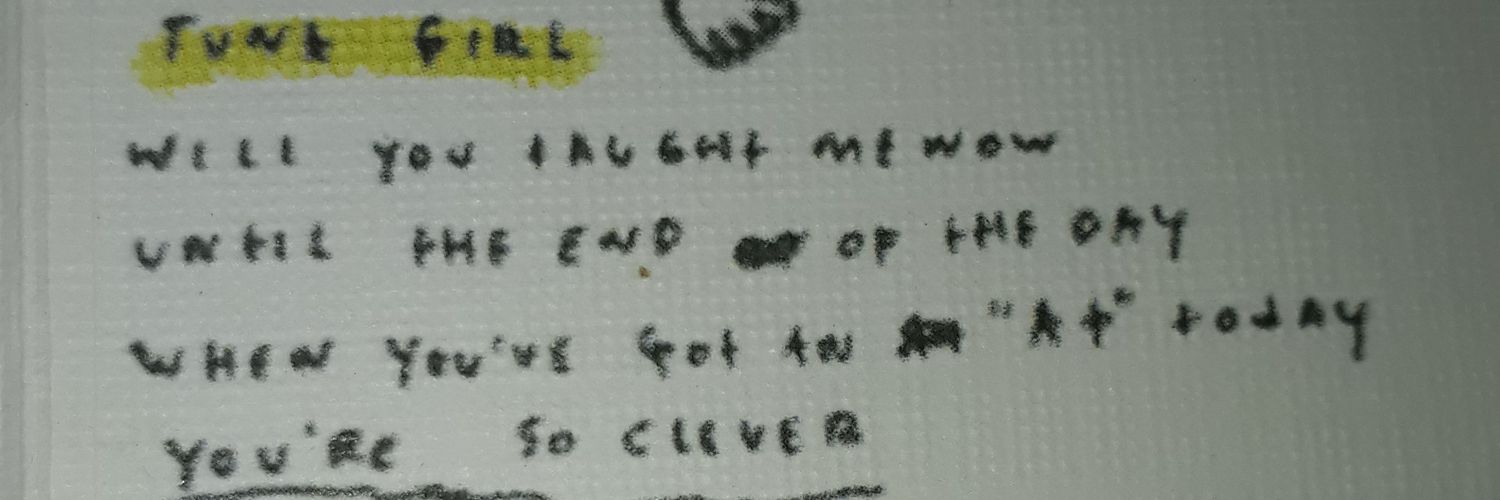 JUNE GIRL
WILL YOU TAUGHT ME NOW
UNTIL THE END OF THE DAY
WHEN YOU'VE GOT AN "A+" TODAY
YOU'RE SO CLEVER